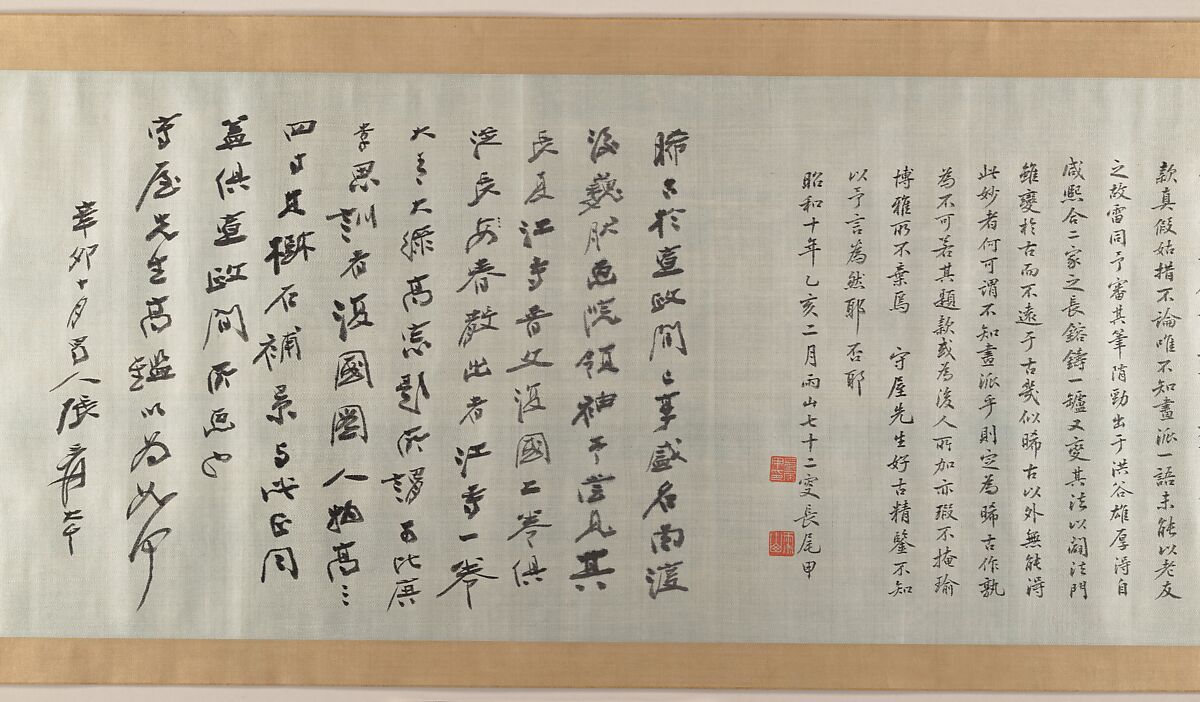 款真假姑措不論唯不知畫派一語未能以老友
之故雷同予審其筆陗勁出于洪谷雄厚淂自
咸熙合二家之長鎔鑄一罏又變其法以闢法門
雖變於古而不遠于古幾似晞古以外無能淂
此妙者何可謂不知畫派乎則定為晞古作孰
為不可若其題款或為後人所加亦瑕不掩瑜
博雅所不棄焉 守屋先生好古精鑒不知
以予言為然耶否耶
昭和十年乙亥二月雨山七十二叟長尾甲
晞古於宣政間已享盛名南渡
後巍肰画院領袖予嘗見其
長夏江寺晉文復國二卷俱
從長安春散出者江寺一卷
大青大綠高宗題所謂可比唐
李思訓者復國圖人物高三
四寸其樹石補景与此正同
蓋俱宣政間所画也
守屋先生高鑑以為如何
辛卯十月蜀人張爰大千